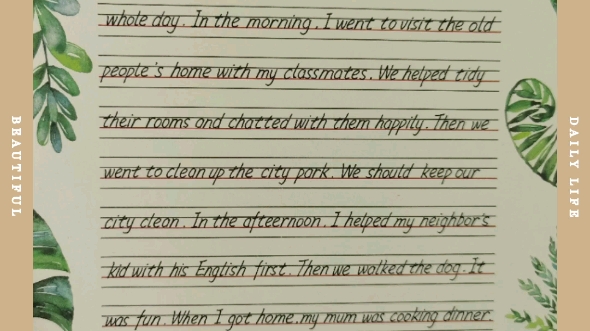 whole day. In the morning, I went to visit the old
people's home with my classmates. We helped tidy
their rooms and chatted with them happily. Then we
went to clean up the city park. We should keep our
city clean. In the afteernoon, I helped my neighbor's
kid with his English first. Then we walked the dog. It
was fun. When I got home, my mum was cooking dinner.
BEAUTIFUL
DAILY LIFE